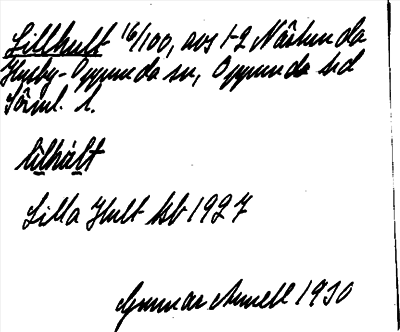 Lillhult 16/100, avs 1-2 Nästunda
Husby-Oppunda sn, Oppunda hd
Sörml. l.
lilhúlt
Lilla Hult kb 1927
Gunnar Arnell 1930